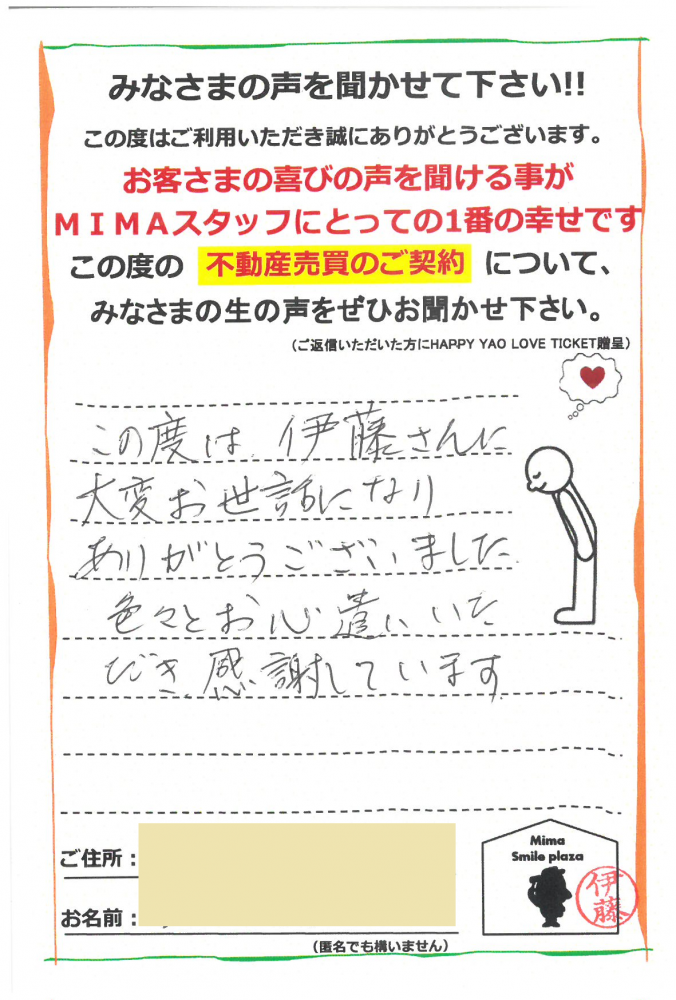 みなさまの声を聞かせて下さい!!
この度はご利用いただき誠にありがとうございます。
お客さまの喜びの声を聞ける事が
ＭＩＭＡスタッフにとっての1番の幸せです
この度の 不動産売買のご契約 について、
みなさまの生の声をぜひお聞かせ下さい。
（ご返信いただいた方にHAPPY YAO LOVE TICKET贈呈）
この度は、伊藤さんに
大変お世話になり
ありがとうございました
色々とお心遣いいた
だき感謝しています
ご住所：
お名前：
（匿名でも構いません）
Mima
Smile plaza
伊藤